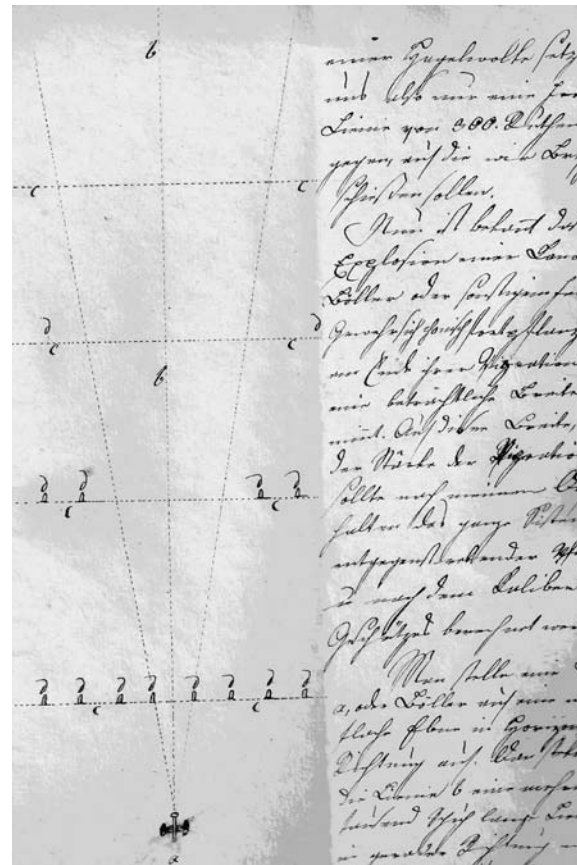 b
c c
d d
c c
b
d d d d
c c
d d d d d d d d
c c
a
einer Hagelwolke setz
uns also nur eine
Linie von 300. Ruthen
gegen, auf die wir
schießen sollen.
Nun ist bekant das
Explosion einer Cano
Böller oder sonstigem
Gewehr sich konisch fortpflanz
am Ende ihrer Vigration
eine beträchtliche Breite
nimt. Aus dieser Breite,
der Stärke der Vigratio
sollte nach meinem
halten das ganze Sistem
entgegenstrebender
u nach dem Caliber
Geschützes berechnet wer
Man stelle eine
a, oder Böller auf eine
tliche Ebne in Horizon
Richtung auf. Dan
die Linie b eine mehre
tausend Schuh lange Lin
in gerader Richtung